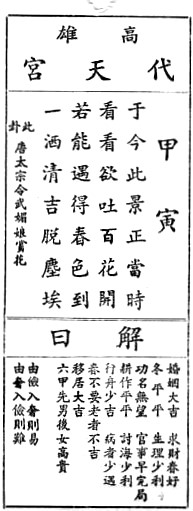 高雄
代天宮
甲寅
于今此景正當時
看看欲吐百花開
若能遇得春色到
一洒清吉脫塵埃
此卦
唐太宗令武媚娘賞花
解曰
婚姻大吉 求財春好
冬平平 生理少利
功名無望 官事早完局
耕作平平 討海少利
行舟少吉 病者少遇
春不要老者不吉
移居大吉
六甲先男後女高貴
由儉入奢則易
由奢入儉則難